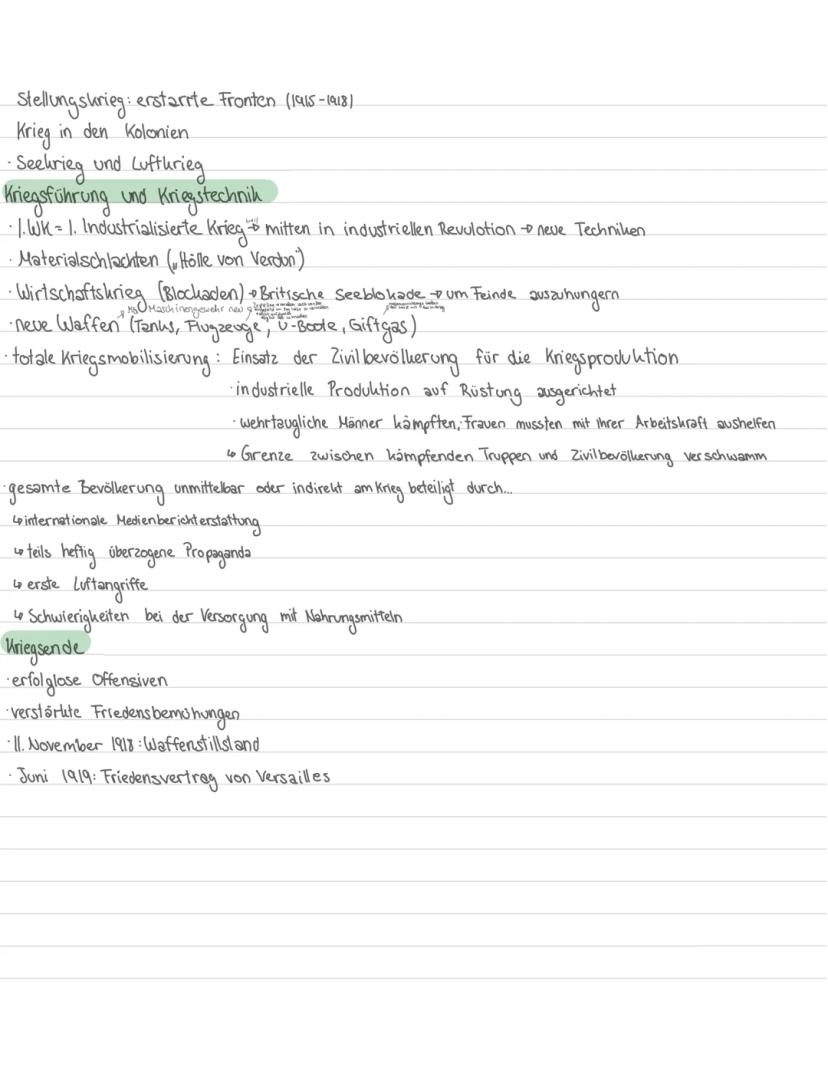 Stellungskrieg: erstarrte Fronten (1915-1918)
Krieg in den Kolonien
· Seekrieg und Luftkrieg
Kriegsführung und Kriegstechnik
· 1. WK = 1. Industrialisierte Krieg → mitten in industriellen Revulotion → neue Techniken
· Materialschlachten ("Hölle von Verdun")
· Wirtschaftskrieg (Blockaden) → Britische Seeblokade → um Feinde auszuhungern
MG Maschinengewehr neu
· neue Waffen (Tanks, Flugzeuge, U-Boote, Giftgas)
· totale Kriegsmobilisierung: Einsatz der Zivilbevölkerung für die Kriegsproduktion
· industrielle Produktion auf Rüstung ausgerichtet
· wehrtaugliche Männer kämpften, Frauen mussten mit ihrer Arbeitskraft aushelfen
↳ Grenze zwischen kämpfenden Truppen und Zivilbevölkerung verschwamm
· gesamte Bevölkerung unmittelbar oder indirekt am Krieg beteiligt durch...
↳ internationale Medienberichterstattung
↳ teils heftig überzogene Propaganda
↳ erste Luftangriffe
↳ Schwierigkeiten bei der Versorgung mit Nahrungsmitteln
Kriegsende
· erfolglose Offensiven
· verstärkte Friedensbemühungen
· 11. November 1918: Waffenstillstand
· Juni 1919: Friedensvertrag von Versailles